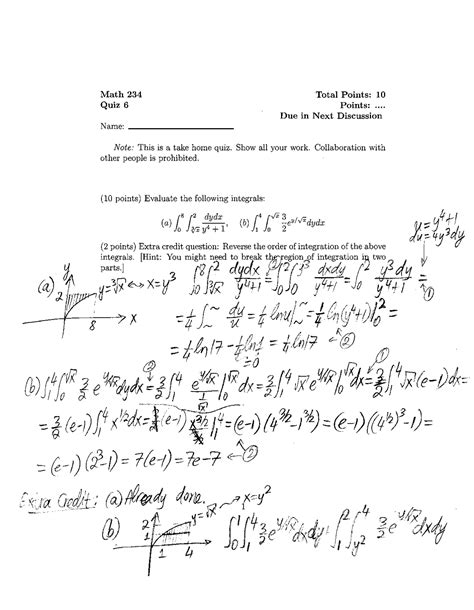 Math 234 Total Points: 10
Quiz 6 Points: ....
Due in Next Discussion
Name:
Note: This is a take home quiz. Show all your work. Collaboration with
other people is prohibited.
(10 points) Evaluate the following integrals:
(a) ∫₀⁸ ∫_{∛x}² dydx/(y⁴+1), (b) ∫₁⁴ ∫₀^{√x} (3/2)e^{y/√x}dydx
u=y⁴+1
du=4y³dy
(2 points) Extra credit question: Reverse the order of integration of the above
integrals. [Hint: You might need to break the region of integration in two
parts.]
(a) y 2 y=∛x ↔ x=y³ 8 x ∫₀⁸∫_{∛x}² dydx/(y⁴+1) = ∫₀²∫₀^{y³} dxdy/(y⁴+1) = ∫₀² y³dy/(y⁴+1) = ①
= 1/4 ∫~~ du/u = 1/4 ln u|~~ = 1/4 ln(y⁴+1)|₀² =
= 1/4 ln17 − 1/4 ln1 = 1/4 ln17 ← ②
=0
(b) ∫₁⁴∫₀^{√x} 3/2 e^{y/√x}dydx = 3/2 ∫₁⁴ e^{y/√x}/(1/√x) |₀^{√x} dx = 3/2 ∫₁⁴ √x e^{y/√x}|₀^{√x} dx = 3/2 ∫₁⁴ √x (e−1)dx =
= 3/2 (e−1) ∫₁⁴ x^{1/2}dx = 3/2 (e−1) x^{3/2}/(3/2) |₁⁴ = (e−1)(4^{3/2}−1^{3/2}) = (e−1)((4^{1/2})³−1) =
= (e−1)(2³−1) = 7(e−1) = 7e−7 ← ②
Extra Credit: (a) Already done.
(b) 2 1 1 4 y=√x → x=y² ∫₀¹∫₁⁴ 3/2 e^{y/√x}dxdy + ∫₁²∫_{y²}⁴ 3/2 e^{y/√x}dxdy